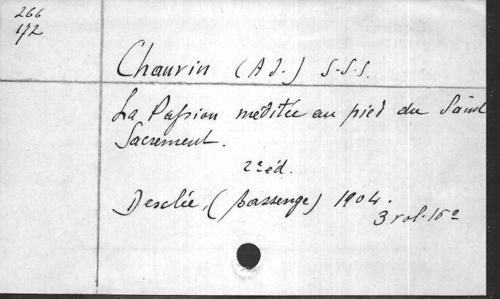 266
172
Chauvin (Ad.) S.S.S.
La Passion méditée au pied du Saint
Sacrement.
2e éd.
Desclée, (passenge) 1904.
3 vol. 16o